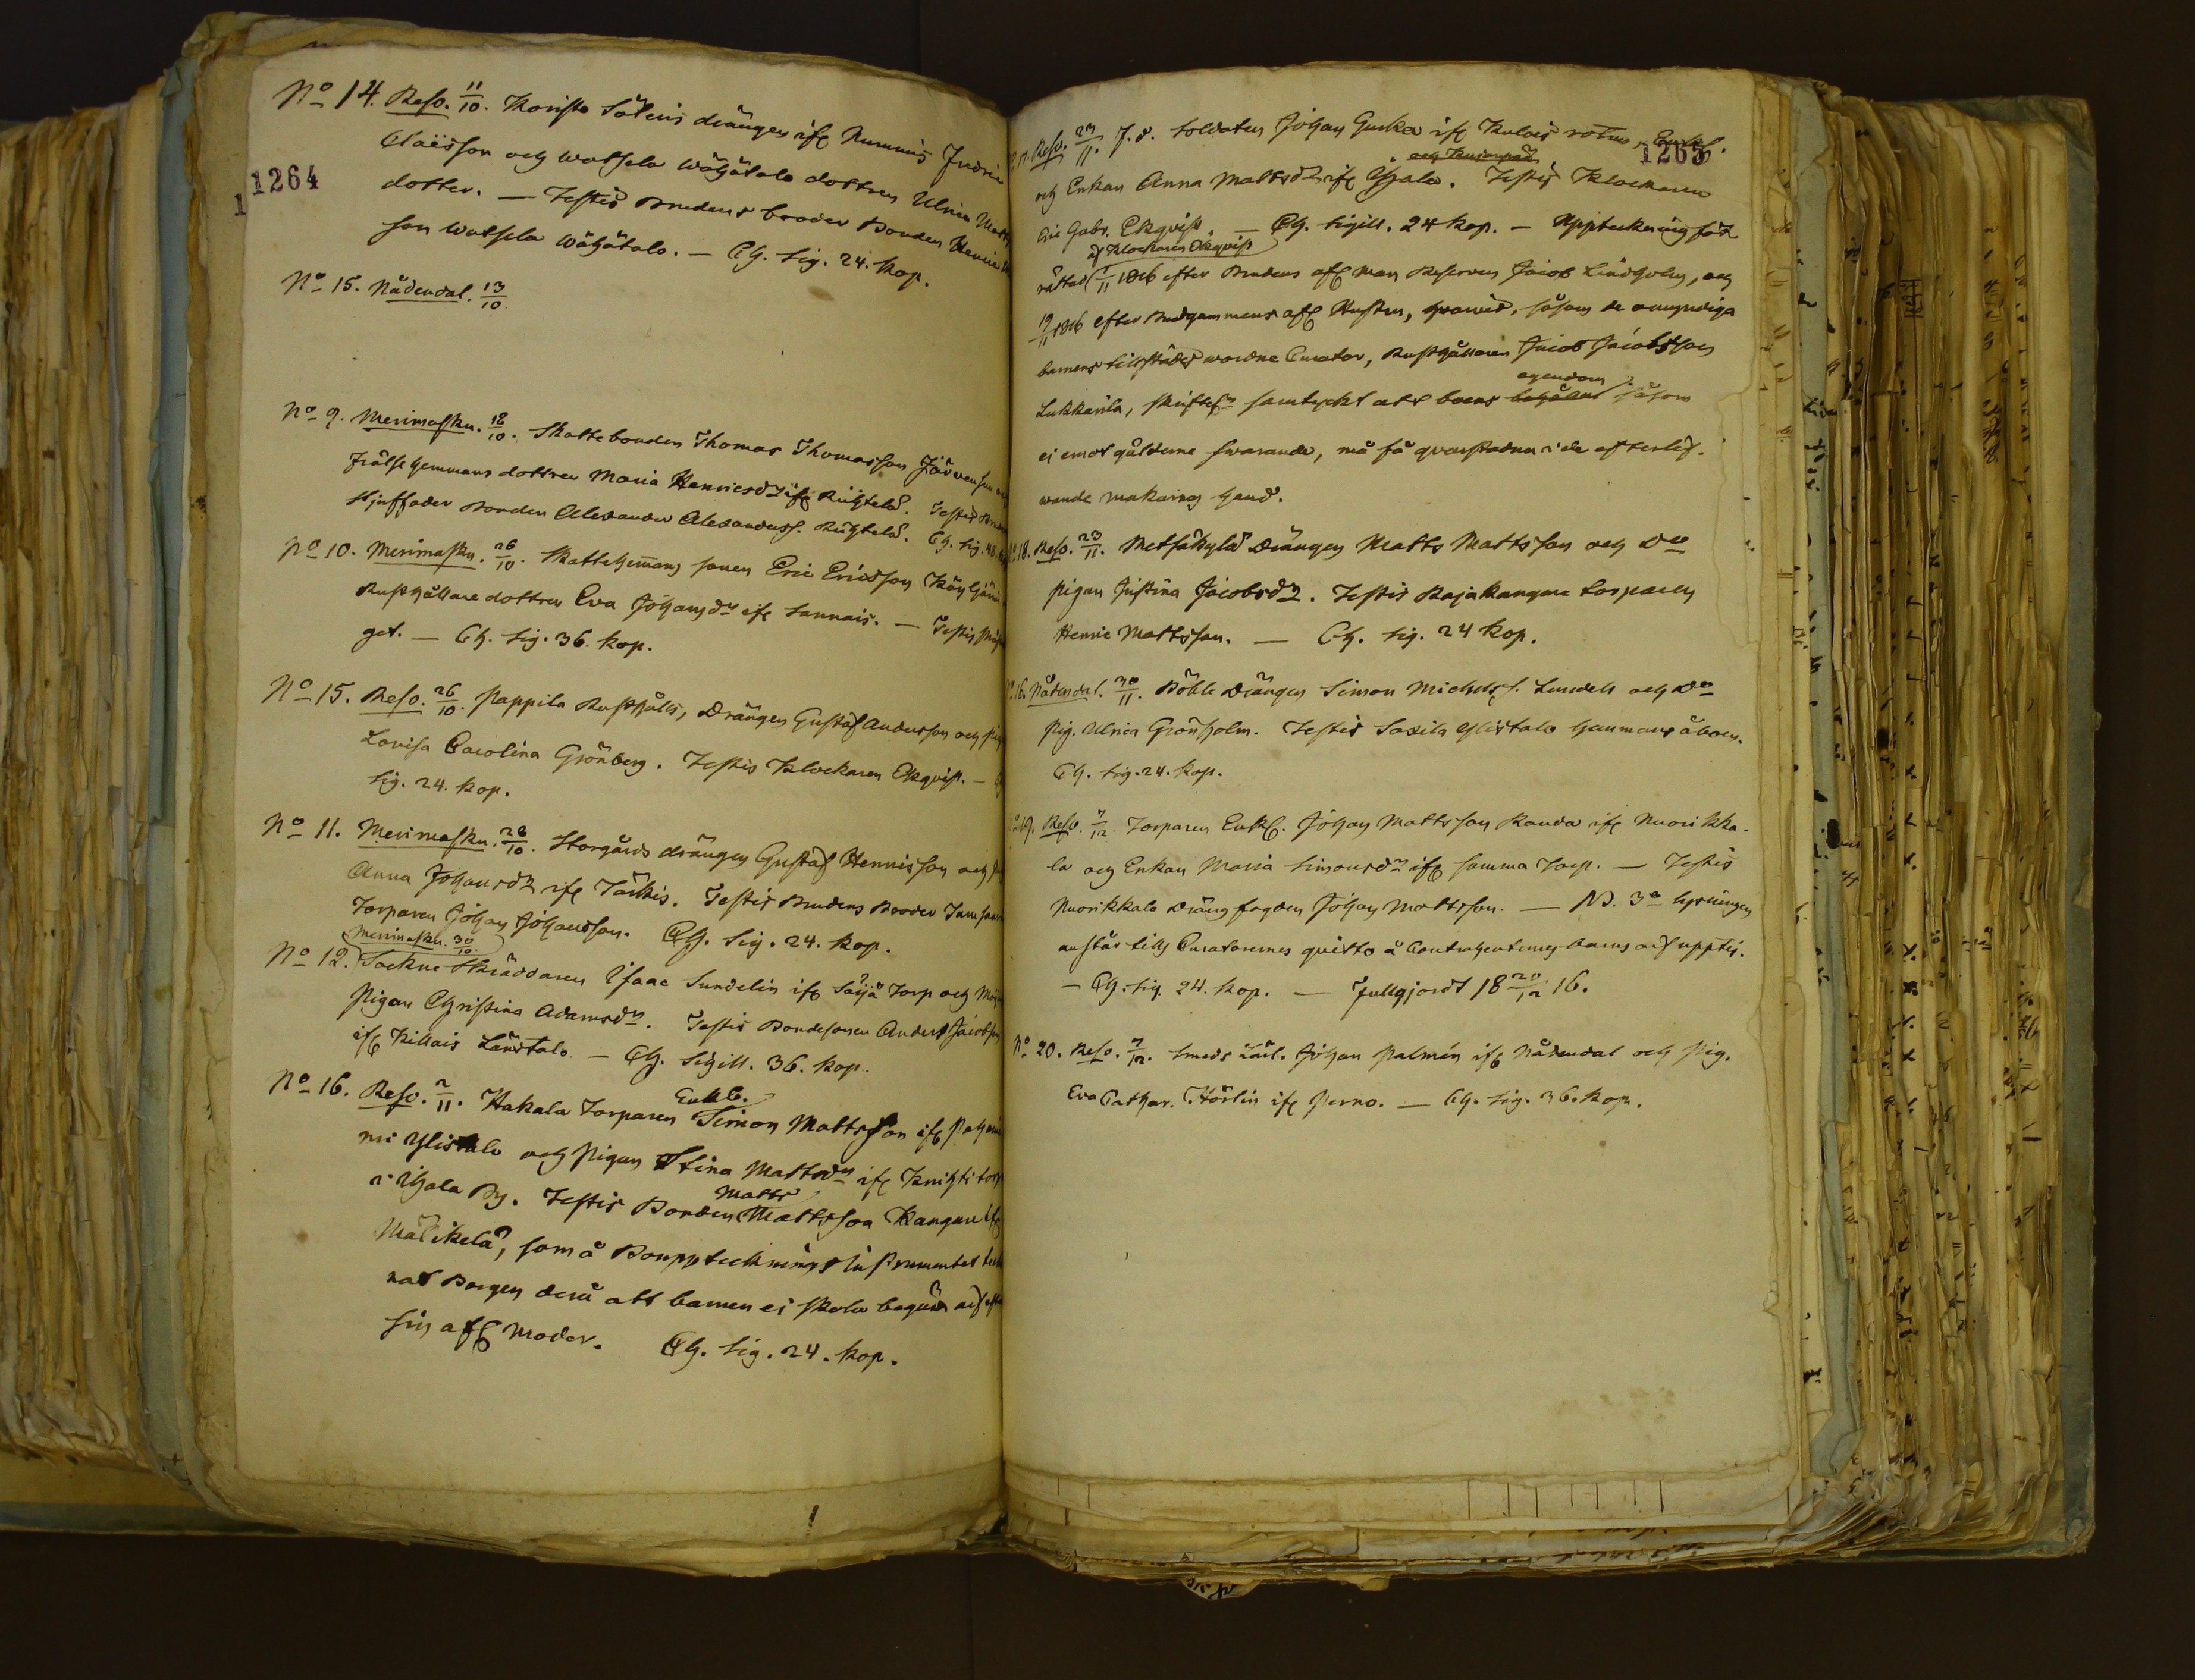 1264
No 14. Reso. 11/10. Koristo Söteris drängen ifr Nummis Fredric
Claësson och Watsela Wähätalo dottren Ulrica Matts
dotter. — Testis Brudens broder Bonden Henric
son Watsela Wähätalo. — Ch. Sig. 24. kop.
No 15. Nådendal. 13/10.
No 9. Merimasku. 18/10. Skattebonden Thomas Thomasson Järvensuu och
Frälsehemmans dottren Maria Henricsdr ifr Riihtelä. Testis
Stjuffader Bonden Alexander Alexanderss. Riihtelä. Ch. Sig. 48.
No 10. Merimasku. 26/10. Skattehemans sonen Eric Ericsson
Rusthållare dottren Eva Johansdr ifr Sannais. — Testis
get. — Ch. Sig. 36. kop.
No 15. Reso. 26/10. Pappila Rusthålls, Drängen Gustaf Andersson och
Lovisa Carolina Grönberg. Testis Klockaren Ekqvist. —
Sig. 24. kop.
No 11. Merimasku. 28/10. Storgårds drängen Gustaf Henrisson och
Anna Johansdr ifr Tärkis. Testis Brudens Broder
Torparen Johan Johansson. Ch. Sig. 24. kop.
Merimasku. 30/10.
No 12. Sockne Skräddaren Isaac Sundelin ifr Säijä Torp och
Pigan Christina Adamsdr. Testis Bondesonen Anders Jacobson
ifr Killais Länsitalo. — Ch. Sigill. 36. kop.
Enkl.
No 16. Reso. 2/11. Hakala Torparen Simon Mattsson ifr
mi Ylistalo och Pigan Stina Mattsdr ifr Knihti torp
i Ihala By. Testis Bonden Matts Mattsson Kangare ifr
Mälikelä, som å Bouppteknings Instrumentet
nat Borgen derå att barnen ei skola begära arf efter
sin afl. Moder. Ch. Sig. 24. kop.
1265
17. Reso. 23/11. F. d. Soldaten Johan Guska ifr Kulais rotes Enkl.
och Enkan Anna Mattsdr ifr Ihala. Testis Klockaren
Eric Gabr. Ekqvist. — Ch. Sigill. 24 kop. — Uppteckning för
af Klockaren Ekqvist
rättad /11 1816 efter Brudens afl. man Reserven Jacob Lindholm, och
19/11 1816 efter Brudgummens afl. Hustru, hvarvid, såsom de omyndiga
barnens tillstädes wordne Curator, Rusthållaren Jacob Jacobsson
egendom
Lukkarila, samtyckt att boens såsom
ei emot gälderne swarande, må få qvarstadna i de efterlef-
wande makarnes hand.
18. Reso. 23/11. Metsäkylä Drängen Matts Mattsson och Do
pigan Justina Jacobsdr. Testis Rajakangare torparen
Henric Mattsson. — Ch. Sig. 24 kop.
16. Nådendal. 30/11. Böhle Drängen Simon Michelss. Lundell och Do
Pig. Ulrica Grönholm. Testis Saxila Ylistalo hemmans åboen.
Ch. Sig. 24. kop.
19. Reso. 7/12. Torparen Enkl. Johan Mattsson Randa ifr Nuorikka-
la och Enkan Maria Simonsdr ifr samma Torp. — Testis
Nuorikkala Dräng fogden Johan Mattsson. — NB. 3e lysningen
anstår tills Curatorernes quitto å Contrahenternes barns arf upptés.
— Ch. Sig. 24. kop. — Fullgjordt 18 20/12 16.
No 20. Reso. 7/12. Smeds Lärl. Johan Palmén ifr Nådendal och Pig.
Eva Cathar. Hörlin ifr Perno. — Ch. Sig. 36. kop.